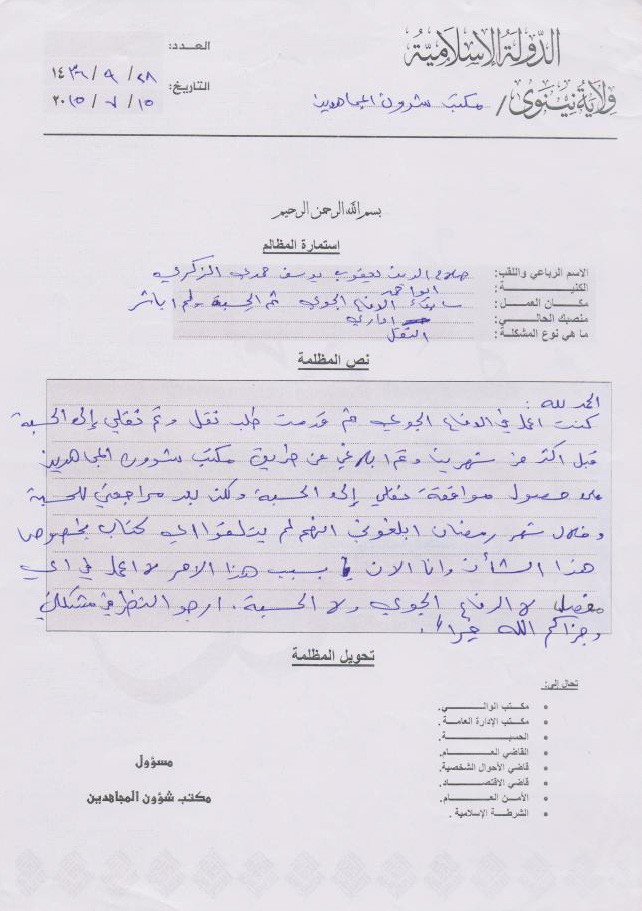 الدولة الإسلامية
ولاية نينوى / مكتب شؤون المجاهدين
العـــدد:
التاريخ: ٢٨ / ٩ / ١٤٣٦
١٥ / ٧ / ٢٠١٥
بسم الله الرحمن الرحيم
استمارة المظالم
الاسم الرباعي واللقب: صلاح الدين يعقوب يوسف حمدي الزكري
الكنيـــــــــة: ابو احمد
مكـان العمـــل: سابقاً الدفاع الجوي ثم الحسبة ولم اباشر
منصبك الحالـي: اداري
ما هي نوع المشكلـة: النقل
نص المظلمة
الحمد لله :
كنت اعمل في الدفاع الجوي ثم قدمت طلب نقل وتم نقلي إلى الحسبة
قبل اكثر من شهرين وتم ابلاغي عن طريق مكتب شؤون المجاهدين
على حصول موافقة نقلي إلى الحسبة ولكن بعد مراجعتي للحسبة
وخلال شهر رمضان ابلغوني انهم لم يتلقوا اي كتاب بخصوص
هذا الشأن وانا الان بسبب هذا الامر لا اعمل في اي
مفصل لا الدفاع الجوي ولا الحسبة. ارجو النظر في مشكلتي
وجزاكم الله خيراً.
تحويل المظلمة
تحال إلى:
• مكـتب الوالـــــــي.
• مكتب الإدارة العامـــة.
• الحسبـــــــــــة.
• القاضي العــــــام.
• قاضي الأحوال الشخصية.
• قاضي الاقتصـــــاد.
• الأمـن العــــــام.
• الشرطـة الإسلامية .
مسؤول
مكتب شؤون المجاهدين